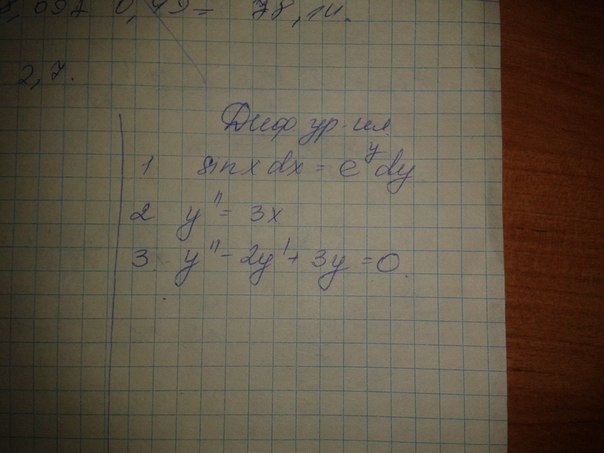 0,49 = 78,14.
2,7.
Диф ур-ия
1 sinx dx = e^y dy
2 y'' = 3x
3. y'' - 2y' + 3y = 0.